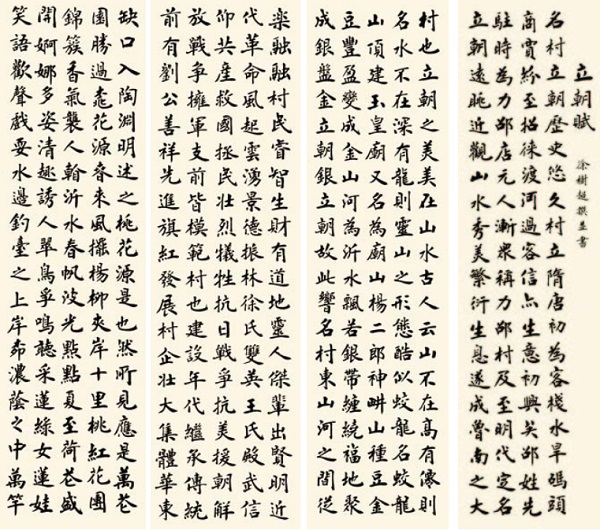 立朝賦
徐樹趙撰並書
名村立朝歷史悠久村立隋唐初為客棧水旱碼頭
商賈紛至招徠渡河過客信点生意初興矣邵姓先
駐時為力邵店元人漸眾稱力邵村及至明代定名
立朝遠眺近觀山水秀美繁衍生息遂成魯南之大
村也立朝之美美在山水古人云山不在高有僊則
名水不在深有龍則靈山之形態酷似蛟龍名蛟龍
山頂建玉皇廟又名為廟山楊二郎神畊山種豆金
豆豐盈變成金山河為沂水飄若銀帶纏繞福地聚
成銀盤金立朝銀立朝故此響名村東山河之間從
楽融融村民嘗智生財有道地靈人傑輩出賢明近
代革命風起雲湧景德振林徐氏雙英王氏殿武信
仰共産救國拯民壯烈犧牲抗日戰爭抗美援朝解
放戰爭擁軍支前皆模範村也建設年代繼承傳統
前有劉公善祥先進旗紅發展村企壯大集體華東
缺口入陶淵明述之桃花源是也然所見應是萬花
團勝過桃花源春来風擺楊柳夾岸十里桃紅花團
錦簇香氣襲人翰沂水春帆波光點點夏至荷花盛
開婀娜多姿清趣誘人翠鳥爭鳴聽采蓮綠女蓮娃
笑語歡聲戲耍水邊釣臺之上岸濃蔭之中萬竿